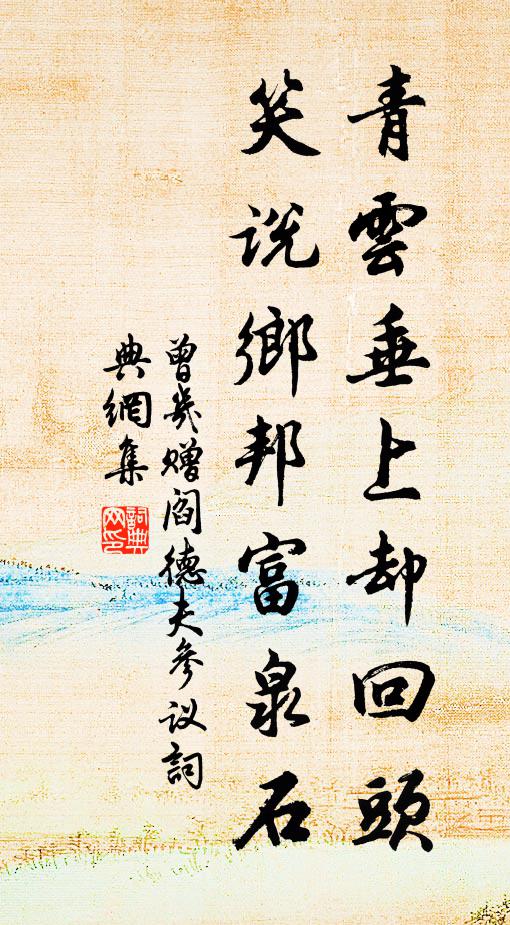 青雲垂上却回頭
笑说鄉邦富泉石
曾幾赠阎德夫參议詞
典網集
詞典
网印